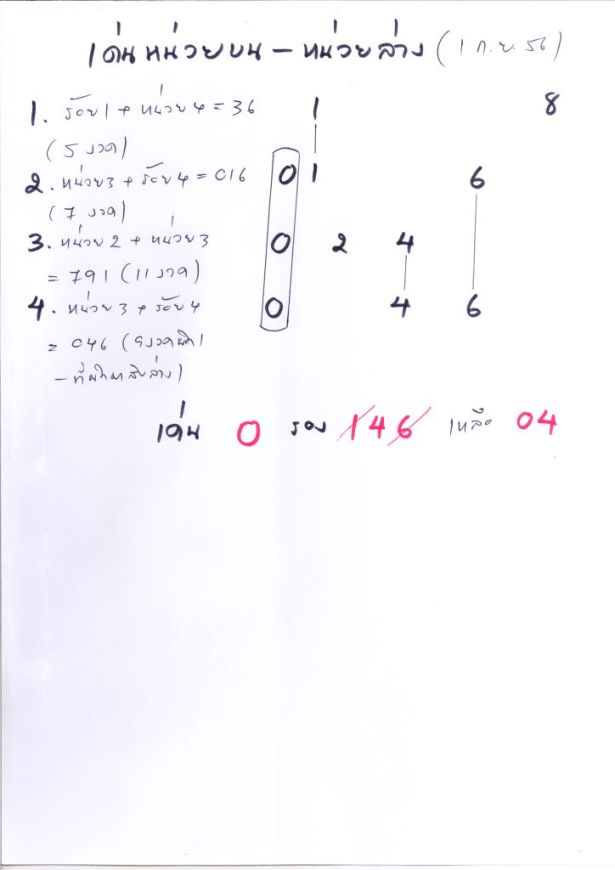 เด่นหน่วยบน - หน่วยล่าง (1 ก.ย. 56)
1. ร้อย 1 + หน่วย 4 = 36 1 8
(5 งวด)
2. หน่วย 3 + ร้อย 4 = 016 0 1 6
(7 งวด)
3. หน่วย 2 + หน่วย 3 0 2 4
= 791 (11 งวด)
4. หน่วย 3 + ร้อย 4 0 4 6
= 046
เด่น 0 รอง 1 4 6 เหลือ 04